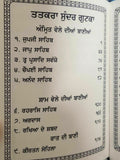 ਤਤਕਰਾ ਸੁੰਦਰ ਗੁਟਕਾ
ਅੰਮ੍ਰਿਤ ਵੇਲੇ ਦੀਆਂ ਬਾਣੀਆਂ
੧. ਜਪੁਜੀ ਸਾਹਿਬ
੨. ਜਾਪੁ ਸਾਹਿਬ
੩. ਤ੍ਵ ਪ੍ਰਸਾਦਿ ਸਵਯੇ
੪. ਚੌਪਈ ਸਾਹਿਬ
੫. ਅਨੰਦ ਸਾਹਿਬ
ਸ਼ਾਮ ਵੇਲੇ ਦੀਆਂ ਬਾਣੀਆਂ
੬. ਰਹਰਾਸਿ ਸਾਹਿਬ
੭. ਅਰਦਾਸ
੮. ਰਖਿਆ ਦੇ ਸ਼ਬਦ
ਰਾਤ ਦੀ ਬਾਣੀ
੯. ਕੀਰਤਨ ਸੋਹਿਲਾ